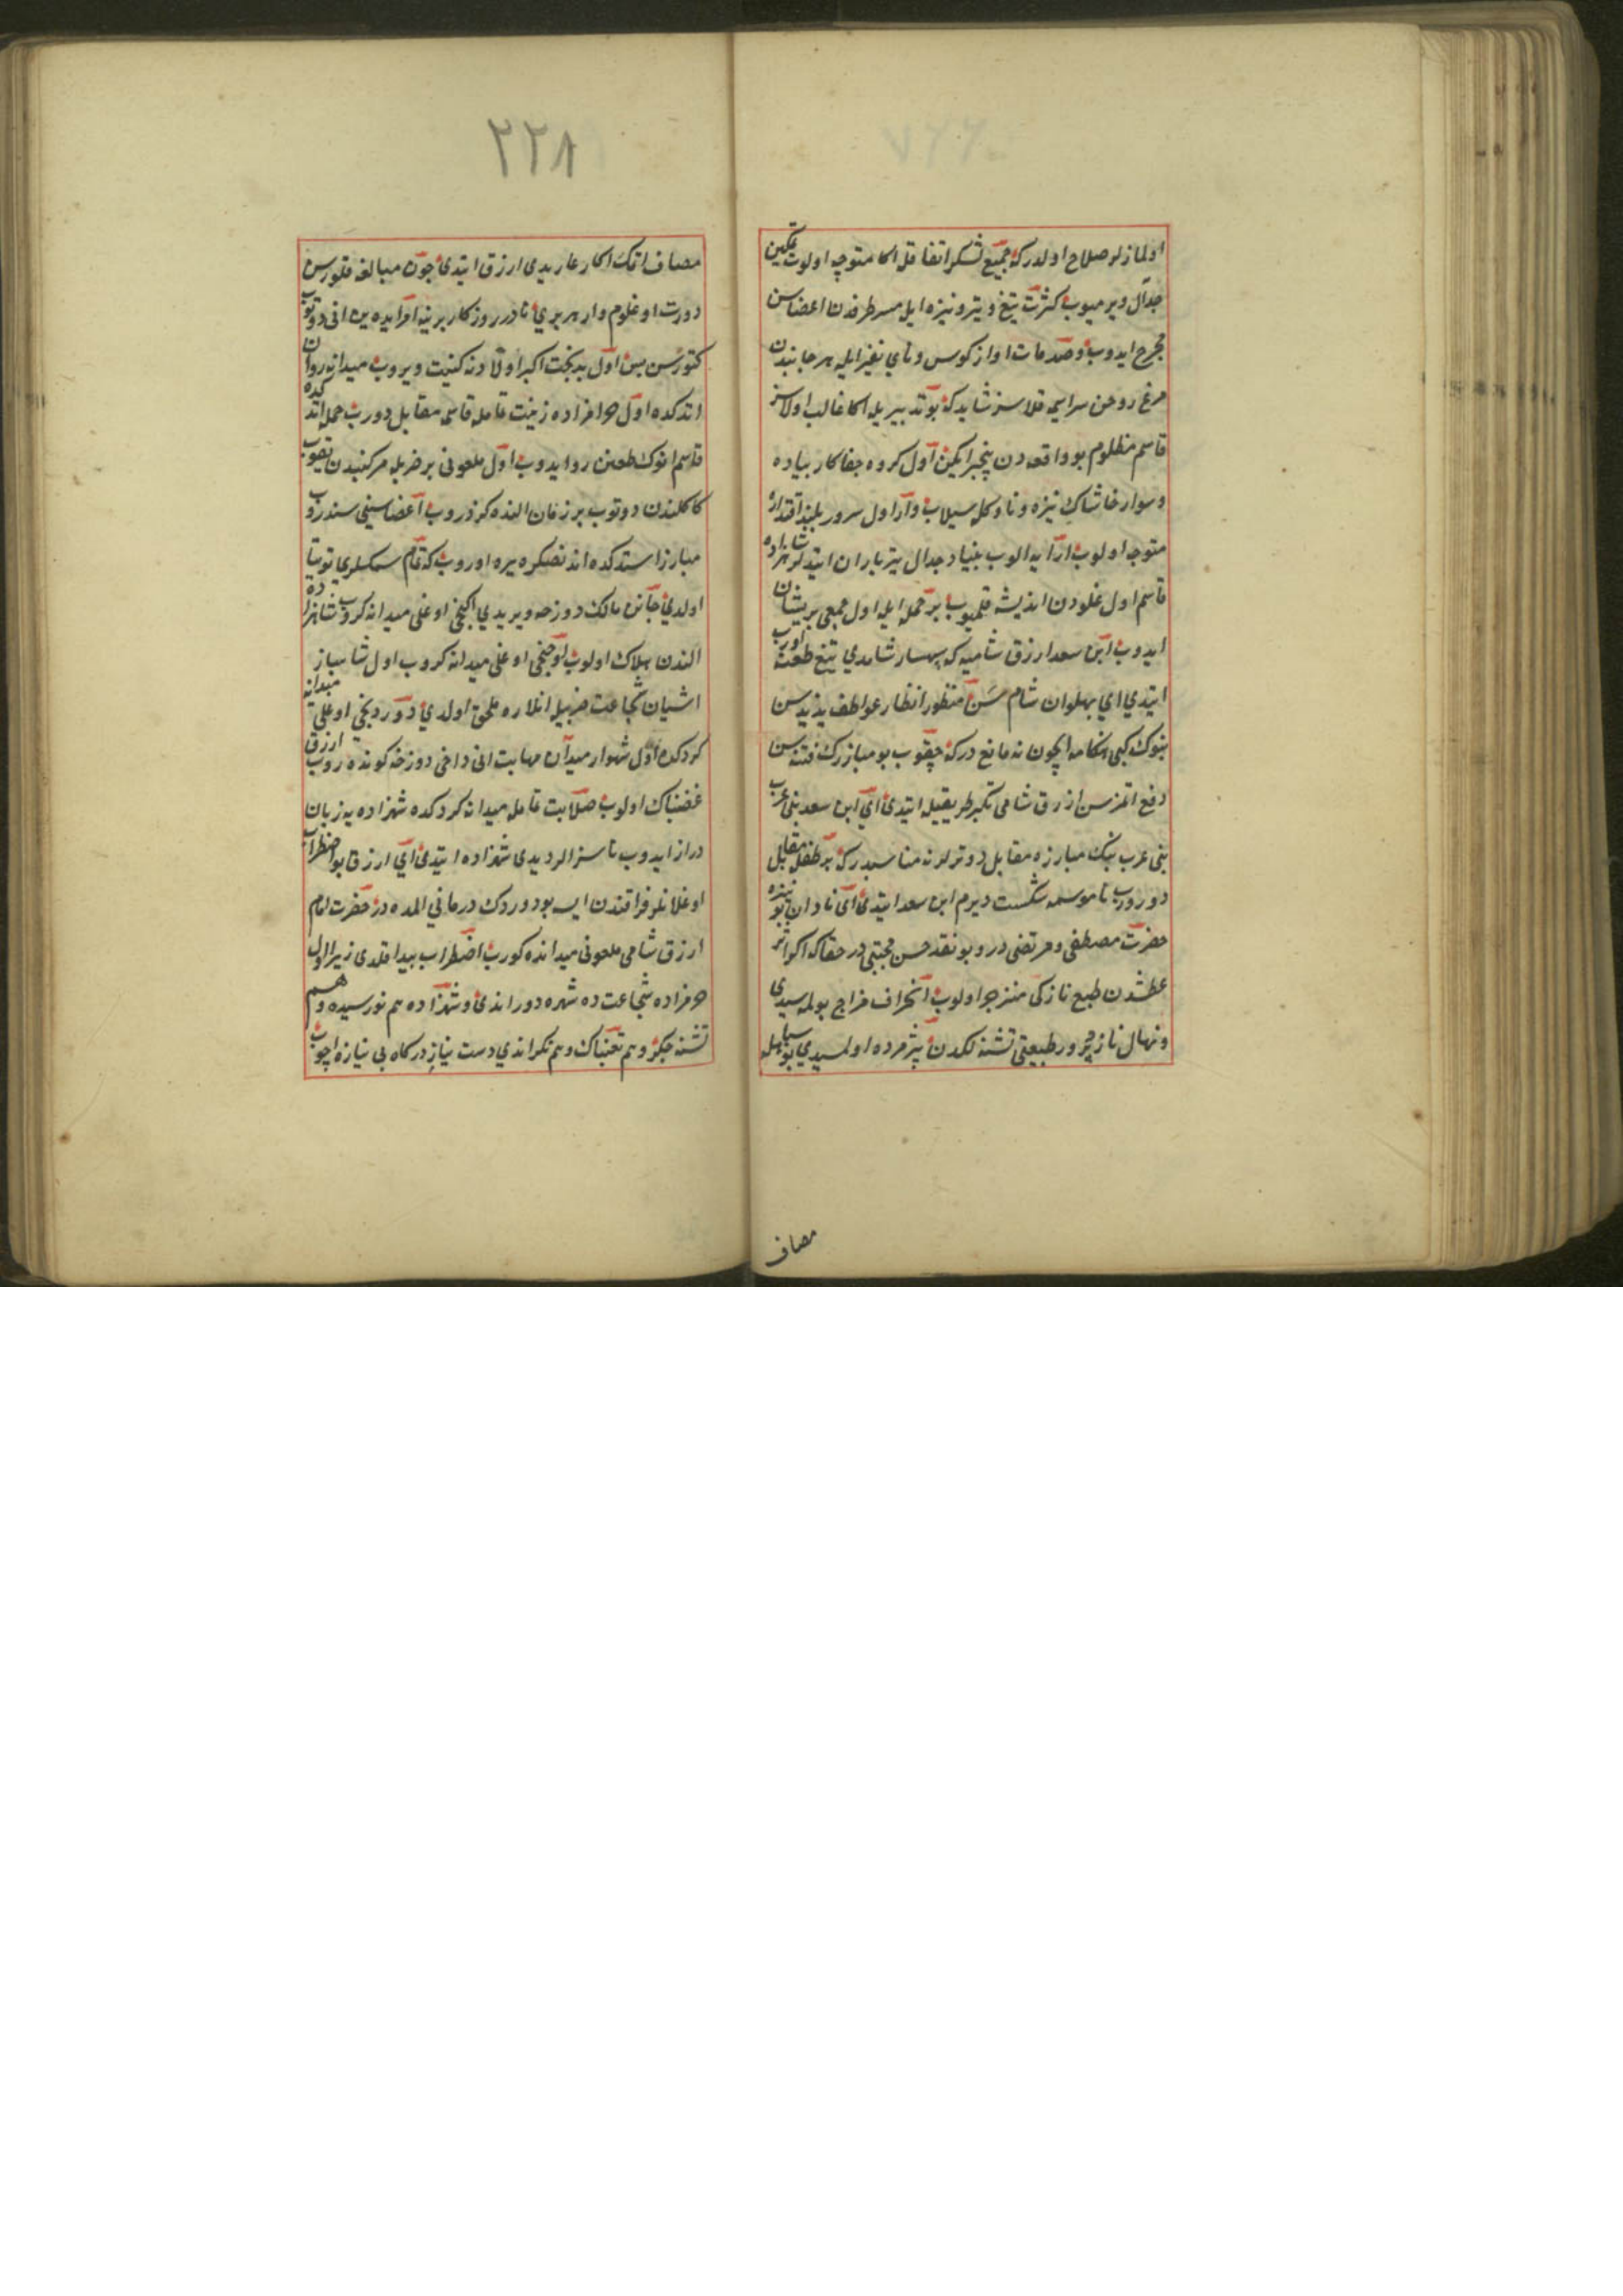 اولمازلر صلاح اولدركه جميع لشكر اتفاقله اكا متوجه اولوب تمكين
جدال ويرميوب كثرت تيغ و تير و نيزه ايله هر طرفدن اعضاسن
مجروح ايدوب و صدمات اواز كوس و ناي نفير ايله هر جانبدن
مرغ روحن سراسيمه قلاسز شايد كه بو تدبير يله اكا غالب اولاسز
قاسم مظلوم بو واقعه دن بيخبر ايكن اول كروه جفاكار پياده
و سوار خاشاك نيزه و ناوكله سيلاب وار اول سرور بلند اقتداره
متوجه اولوب ارايه الوب بنياد جدال تير باران ايتديلر شاهزاده
قاسم اول غلودن انديشه قلميوب بر حمله ايله اول جمعي پريشان
ايدوب ابن سعد ارزق شاميه كه سپهسار شامدي تيغ طعنه اوروب
ايتدي اي پهلوان شام سن منظور انظار عواطف يزيدسن
بنوك كبي هنكامه ايچون نه مانع دركه چقوب بو مبارزك فتنه سن
دفع اتمزسن ازرق شامي تكبر طريقيله ايتدي اي ابن سعد بني عرب
بني عرب بيك مبارزه مقابل دوترلر نه مناسبدركه بر طفل مقابل
دوروب ناموسمه شكست ويرم ابن سعد ايتدي اي نادان بو نبيره
حضرت مصطفى و مرتضى در و بو نقد حسن مجتبى در حقاكه اكر اثر
عطشدن طبع نازكى منزجر اولوب انحراف مزاج بولمسيدي
و نهال نازپرور طبيعتى تشنه لكدن پژمرده اولمسيدي بو سپاهله
مصاف
٢٢٨
مصاف اتمك اكا عار يدي ارزق ايتدي چون مبالغه قلورسن
دورت اوغلوم وار هر بري نادر روزكار برينه امر ايده ين اني دوتوب
كتورسن پس اول بدبخت اكبر اولادنه كنيت ويروب ميدانه روان
اتدكده اول حرامزاده زينت تامله قاسمه مقابل دوروب حمله اتدكده
قاسم انوك طعنن رد ايدوب اول ملعوني بر ضربله مركبندن يقوب
كاكلندن دوتوب بر زمان النده كزدروب اعضاسيني سندروب
مبارز استدكده اندنصكره يره اوروب كه تمام سمكلري توتيا
اولدي جانن مالك دوزخه ويردي ايكنجي اوغلي ميدانه كروب شاهزاده
الندن هلاك اولوب اوچنجي اوغلي ميدانه كروب اول شاهباز
اشيان شجاعت ضربيله انلاره ملحق اولدي دوردنجي اوغلي ميدانه
كردكده اول شهسوار ميدان مهابت اني داخي دوزخه كوندروب ارزق
غضبناك اولوب صلابت تامله ميدانه كردكده شهزاده يه زبان
دراز ايدوب ناسزالر ديدي شهزاده ايتدي اي ارزق بو اضطراب
اوغلانلر فراقندن ايسه بو دردك درماني المده در حضرت امام
ارزق شامي ملعوني ميدانده كورب اضطراب پيدا قلدي زيرا اول
حرامزاده شجاعت ده شهره دوراندي و شهزاده هم نورسيده و هم
تشنه جكر و هم تعبناك و هم نكراندي دست نياز دركاه بي نيازه اچوب